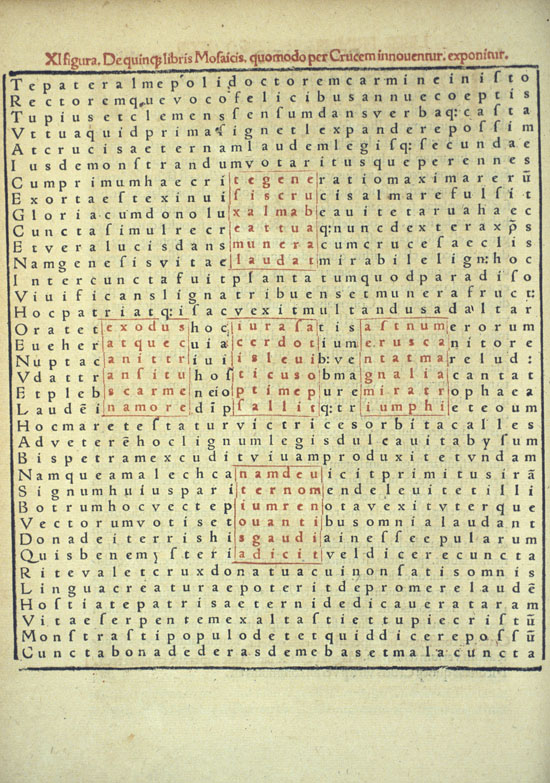 XI figura. De quinq; libris Moſaicis, quomodo per Crucem innouentur, exponitur.
Tepateralmepolidoctoremcarmineiniſto
Rectoremq;uevocofelicibusannuecoeptis
Tupiusetclemensſenſumdansverbaq:caſta
Vttuaquidprimaſignetlexpandererepoſſim
Atcrucisaeternamlaudemlegiſq:ſecundae
Iusdemonſtrandumvotaritusqueperennes
Cumprimumhaecritegeneratiomaximarerū
Exortaeſtexinuiſiscrucisalmarefulſit
Gloriacumdonoluxalmabeauitetaruahaec
Cunctaſimulrecreattuaq:nuncdexteraxp̄s
Etveralucisdansmuneracumcruceſaeclis
Namgeneſisvitaelaudatmirabilelign:hoc
Intercunctafuitplantatumquodparadiſo
Viuificanslignatribuensetmunerafruct:
Hocpatriatq:iſacvexitmultandusadaltar
Oratetexodushociuraſatisaſtnumerorum
Eueheratquecuiacerdotiumeruscanitore
Nuptaeanittriuiisleuib:ventatmarelud:
Vdattranſituhoſticuſobmagnaliacantat
Etplebſcarmeneioptimepuremiratrophaea
Laudēinamoredīpſallitq:triumphieteoum
Hocmareteſtaturvictricesorbitacalles
Adveterēhoclignumlegisduleauitabyſum
Bispetramexcuditviuamproduxitetvndam
Namqueamalechcanamdeuicitprimitusirā
Signumhuiuspariternomendeleuitetilli
Botrumhocvectepiumrenotavexitvterque
Vectorumvotisetouantibusomnialaudant
Donadeiterrishisgaudiaineſſeepularum
Quisbenemyſteriadicitveldicerecuncta
Ritevaletcruxdonatuacuinonſatisomnis
Linguacreaturaepoteritdepromerelaudē
Hoſtiatepatrisaeternidedicauerataram
Vitaeſerpentemexaltaſtiettupiecriſtū
Monſtraſtipopulodetetquiddicerepoſſū
Cunctabonadederasdemebasetmala:cuncta